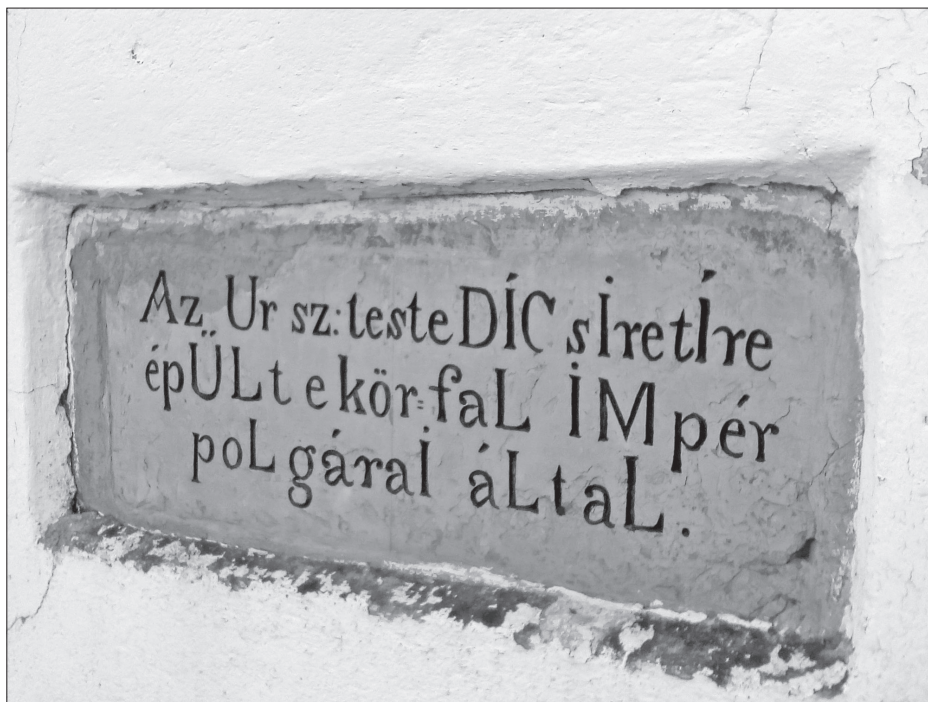 Az Ur sz: teste DÍCsİretÍre
épÜLt e kör=faL İMpér
poLgáraİ áLtaL.